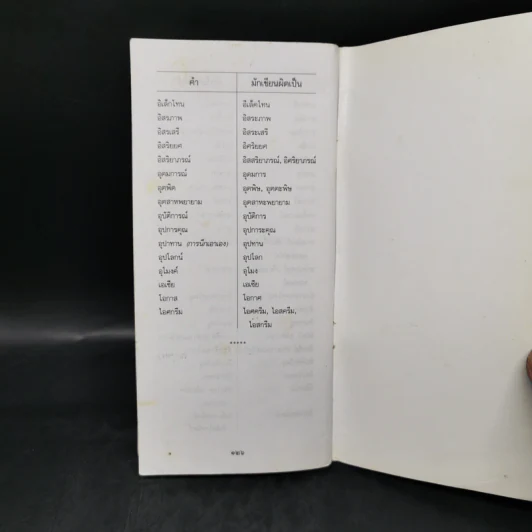 คำ มักเขียนผิดเป็น
อิเล็กโทน อิเล็คโทน
อิสรภาพ อิสระภาพ
อิสรเสรี อิสระเสรี
อิสริยยศ อิศริยยศ
อิสริยาภรณ์ อิสสริยาภรณ์, อิศริยาภรณ์
อุดมการณ์ อุดมการ
อุตพิด อุตพิษ, อุตตะพิษ
อุตสาหพยายาม อุตสาหะพยายาม
อุบัติการณ์ อุบัติการ
อุปการคุณ อุปการะคุณ
อุปาทาน (การนึกเอาเอง) อุปทาน
อุปโลกน์ อุปโลก
อุโมงค์ อุโมง
เอเชีย เอเซีย
โอกาส โอกาศ
ไอศกรีม ไอศครีม, ไอสครีม,
ไอสกรีม
*****
๑๒๖